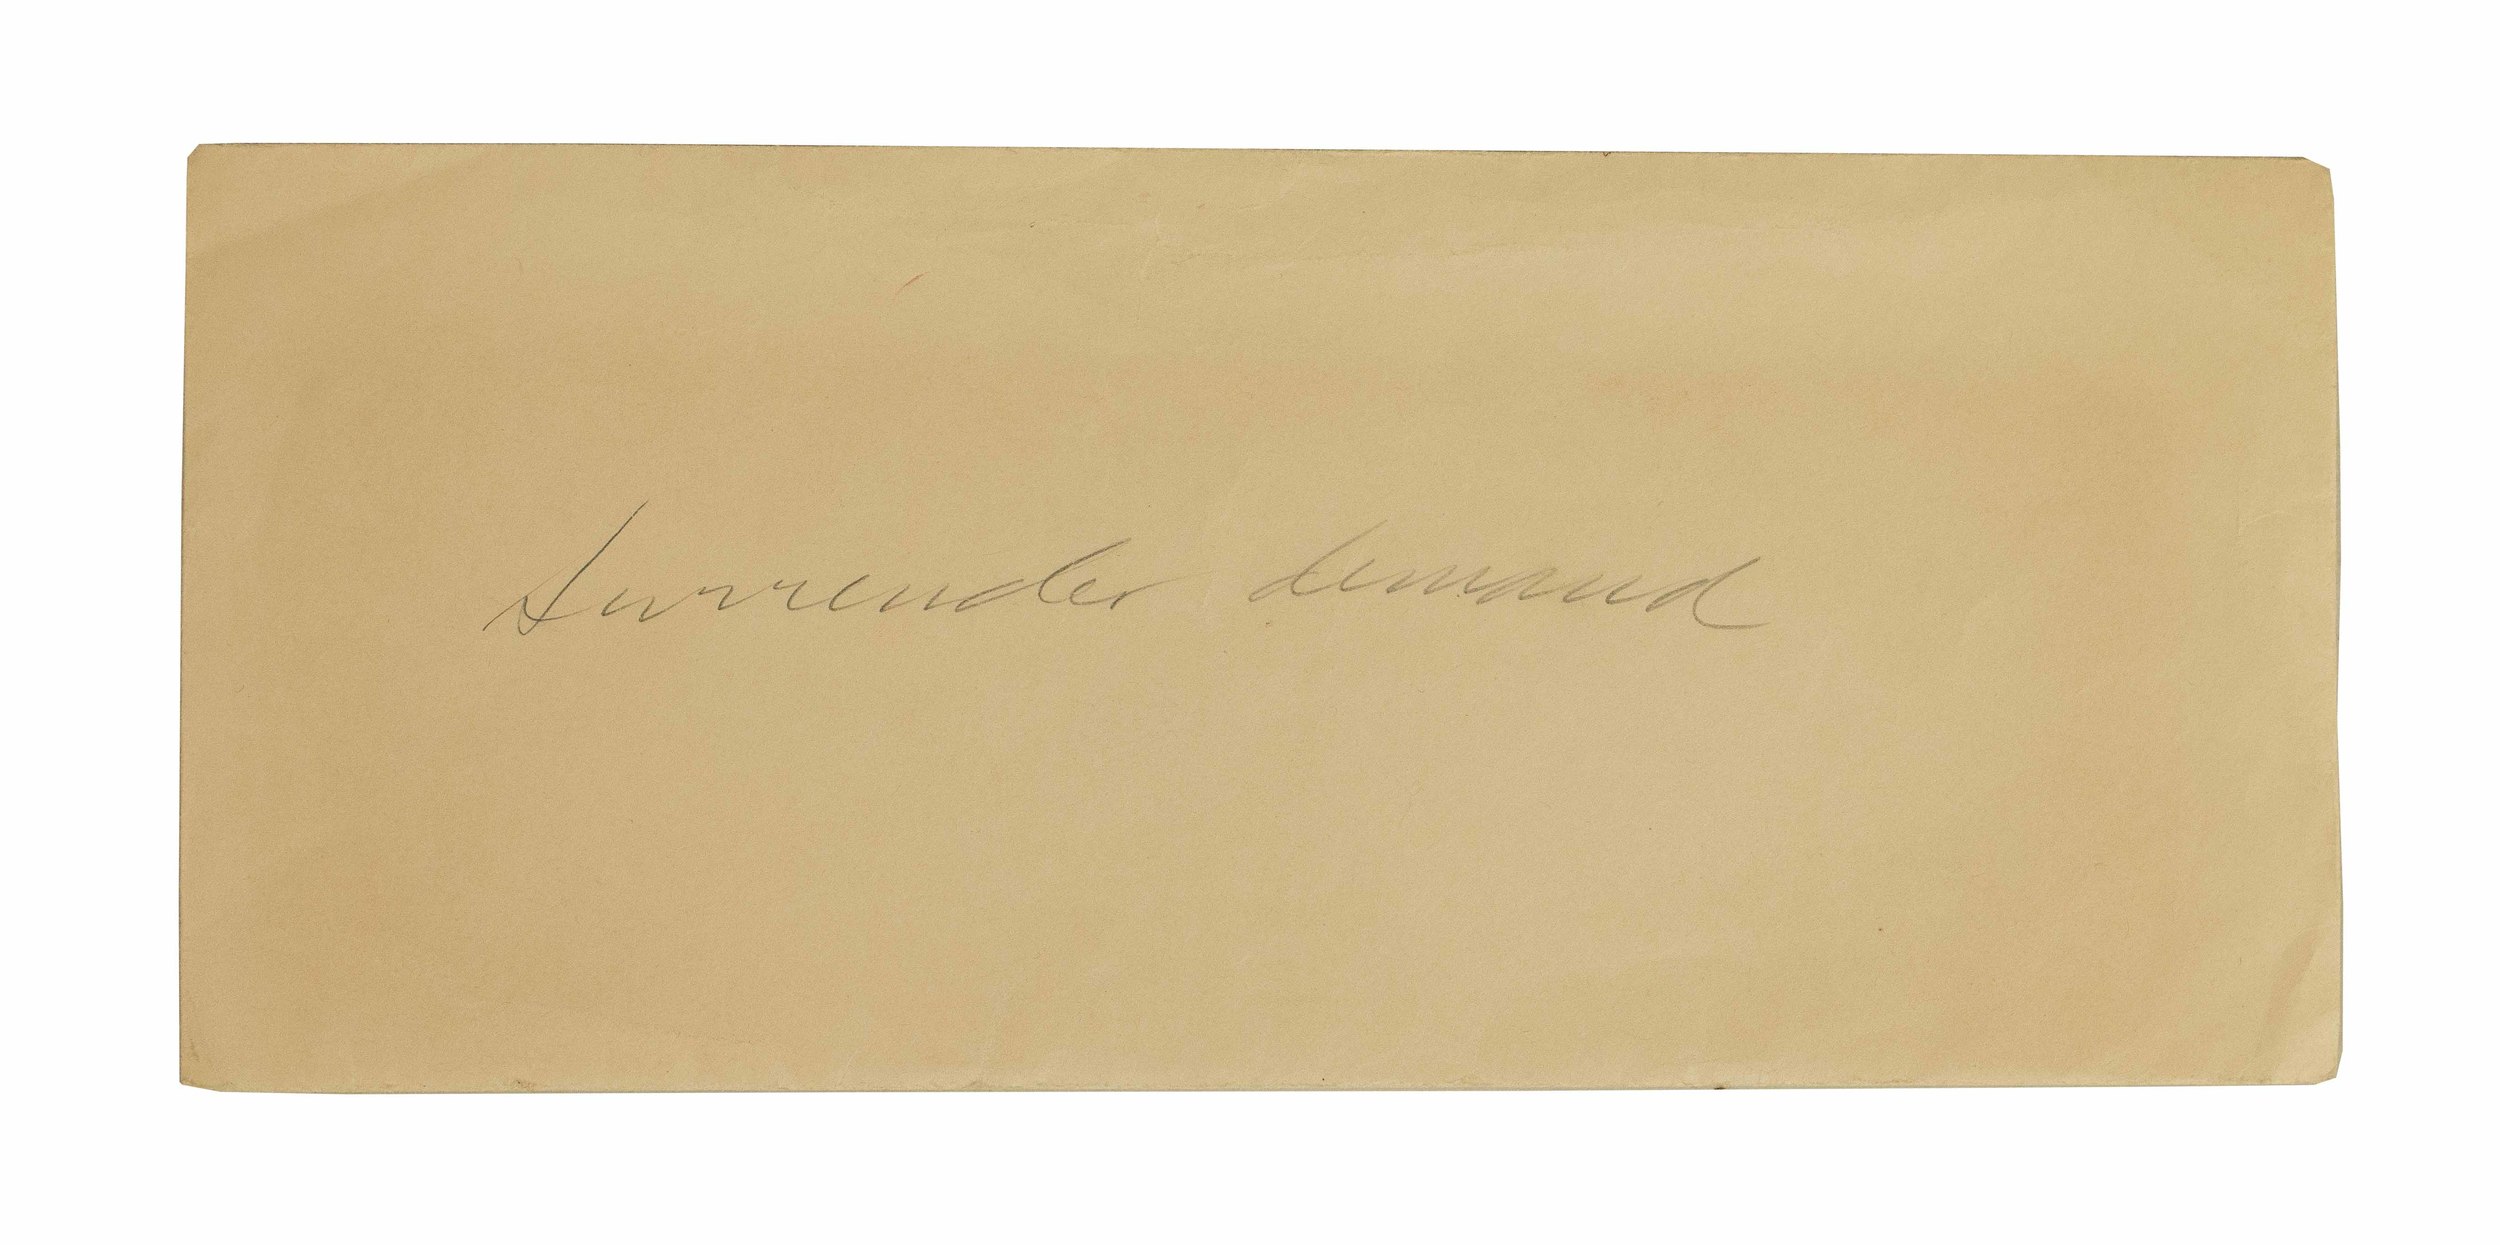 Surrender demand